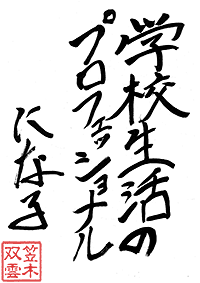 学校生活の
プロフェッショナル
になる
笠木
双雲